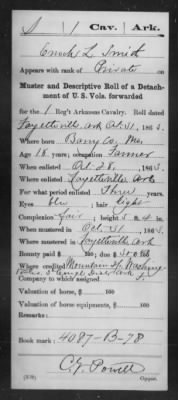 S | 1 | Cav. | Ark.
Enoch L. Smid
Appears with rank of Private on
Muster and Descriptive Roll of a Detach-
ment of U. S. Vols. forwarded
for the 1 Reg't Arkansas Cavalry. Roll dated
Fayetteville Ark Oct 31, 1863.
Where born Barry Co, Mo.
Age 18 years; occupation Farmer
When enlisted Oct 28, 1863
Where enlisted Fayetteville Ark
For what period enlisted Three years.
Eyes blue; hair light
Complexion fair; height 5 ft. 4 in.
When mustered in Oct. 31, 1863.
Where mustered in Fayetteville Ark
Bounty paid $ 100; due $ 100
Where credited Mountain
Company to which assigned
Valuation of horse, $ 100
Valuation of horse equipments, $ 100
Remarks:
Book mark: 4087-B-78
C. G. Powell
Copyist.